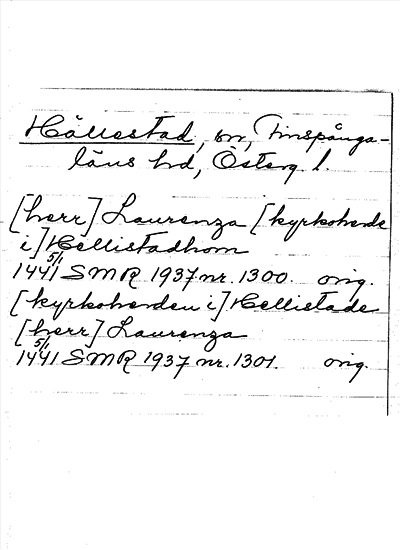 Hällestad, sn, Finspånga-
läns hd, Österg. l.
[herr] Laurenza [kyrkoherde
i] Hællistadhom
5/1
1441 SMR 1937 nr. 1300. orig.
[kyrkoherden i] Hellistade
[herr] Laurenza
5/1
1441 SMR 1937 nr. 1301. orig.